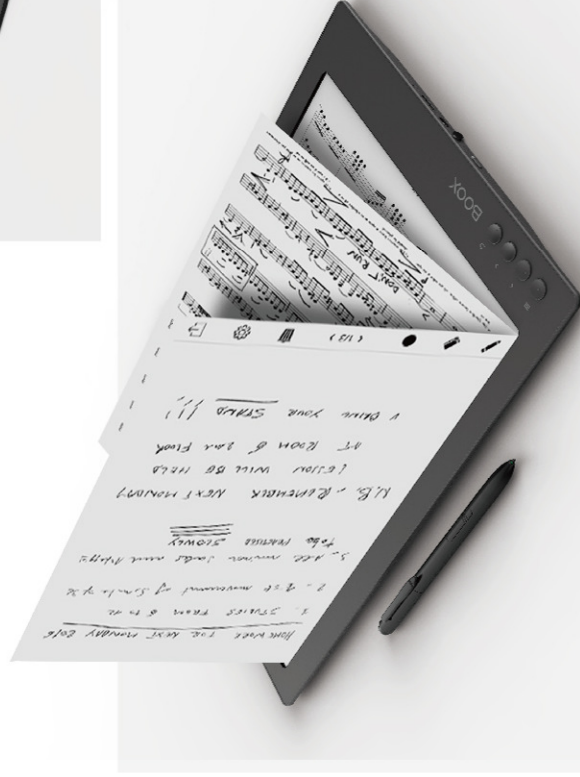 BOOX
DON'T RUN
( 1/3 )
HOMEWORK FOR NEXT MONDAY 20/6
1. STUDIES FROM 6 to
2. movement of
3. All minor scales and
to be PRACTISED SLOWLY
N.B. - REMEMBER NEXT MONDAY
LESSON WILL BE HELD
AT ROOM 6 2nd FLOOR
BRING YOUR STAND !!!